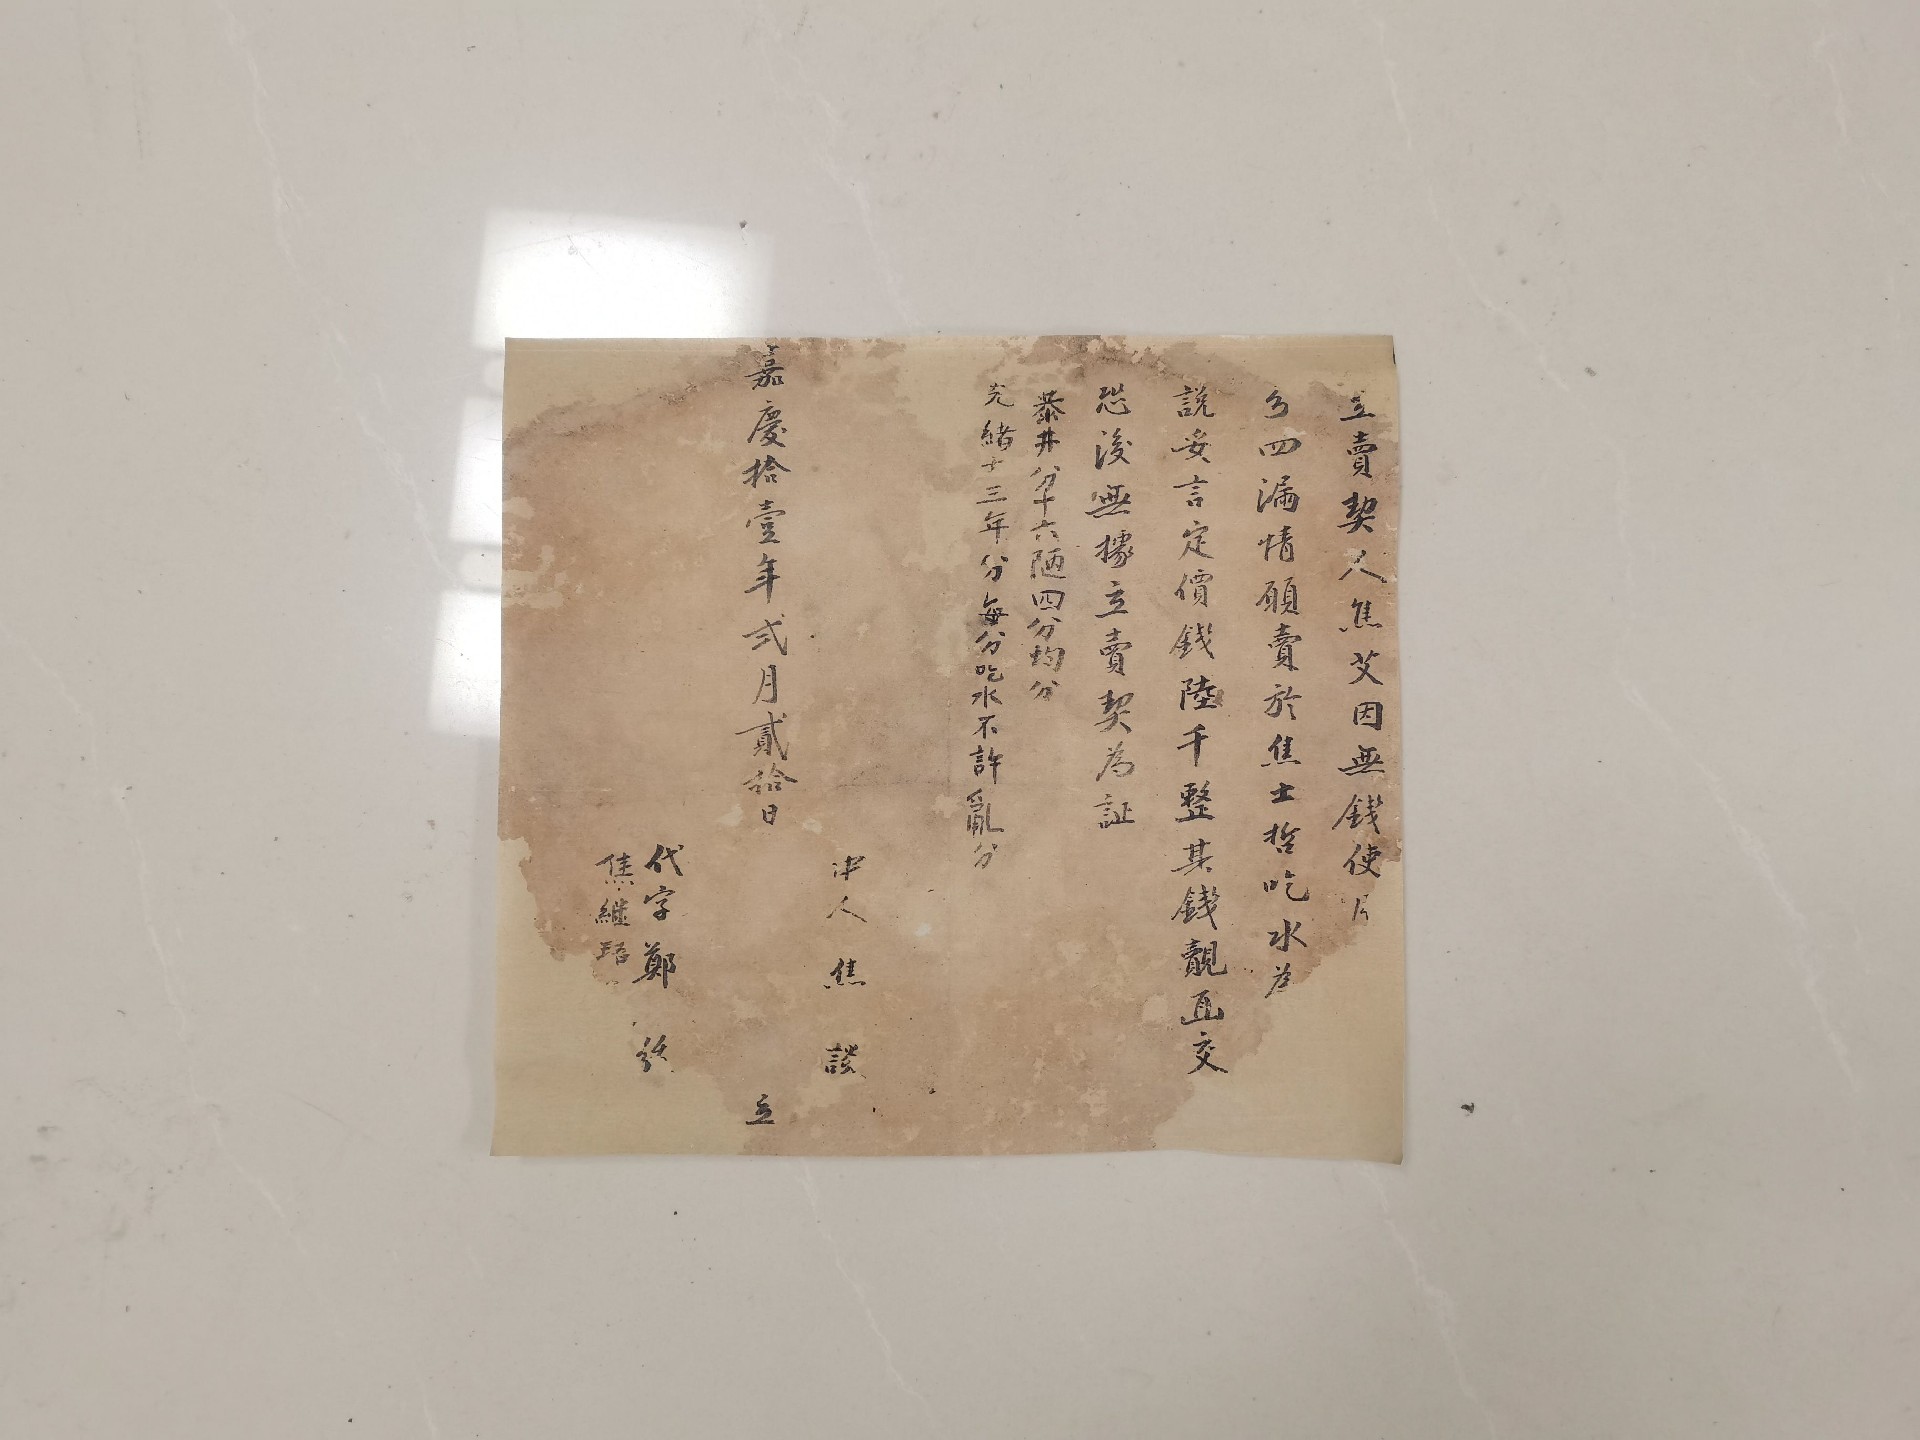 立賣契人焦艾因無錢使
四漏情願賣於焦士哲吃水為
説妥言定價錢陸千整其錢覿面交
恐後無據立賣契為証
井分十六陋四分均分
光緒十三年分每分吃水不許亂分
中人焦談
嘉慶拾壹年弍月貳拾日立
代字鄭
焦繼